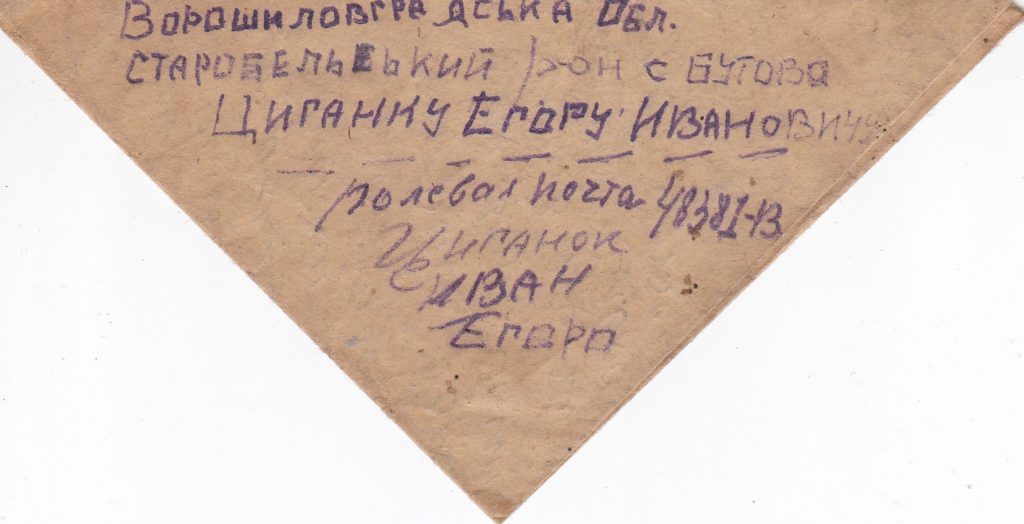 Ворошиловградська обл.
Старобельський р-он с Бутово
Циганку Егору Ивановичу
полевая почта 48381-В
Циганок
Иван
Егоро